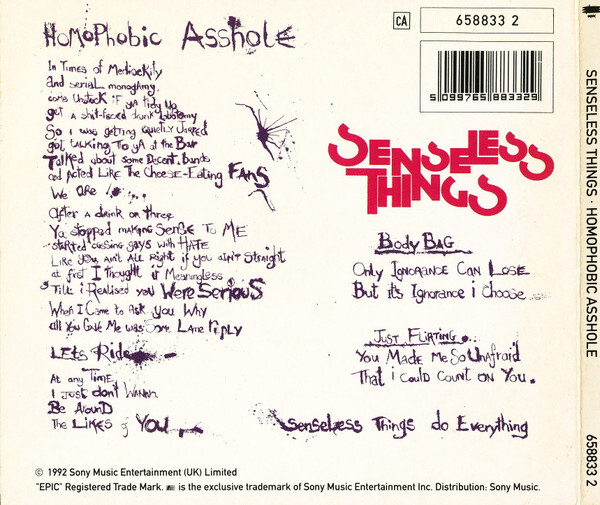 HoMoPhobic Asshole
In Times of Mediocrity
and serial monoghmy
coma Unstuck if ya tidy up
get a shit-faced drunk lobotomy
So i was getting Quietly Jarred
got talking To ya at the Bar
Talked about some Decent bands
and acted Like The Cheese-Eating FANS
We are !...
After a drink or three
Ya stopped making SenSe To ME
started cursing gays with HATE
Like you ain't All Right if you ain't straight
at first I thought it Meaningless
Till i Realised you Were Serious
When I Came to Ask you Why
all you Gave Me was Some Lame reply
Lets Ride
At any Time
I Just don't Wanna
Be Around
The Likes of You...
CA
658833 2
5 099765 883329
SENSELESS
THINGS
Body BAG
Only Ignorance Can Lose
But its Ignorance i Choose
Just Flirting...
You Made Me So Unafraid
That i Could Count on You.
Senseless Things do Everything
© 1992 Sony Music Entertainment (UK) Limited
"EPIC" Registered Trade Mark. is the exclusive trademark of Sony Music Entertainment Inc. Distribution: Sony Music.
SENSELESS THINGS · HOMOPHOBIC ASSHOLE
658833 2